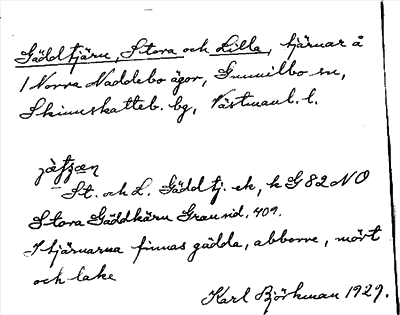 Gäddtjärn, Stora och Lilla, tjärnar å
1 Norra Naddebo ägor, Gunnilbo sn,
Skinnskatteb. bg, Västmanl. l.
jä̀tʃæn
St. och L. Gäddtj. ek, k G 82 NO
Stora Gäddkärn Granvid, 409.
I tjärnarna finnas gädda, abborre, mört
och lake
Karl Björkman 1929.